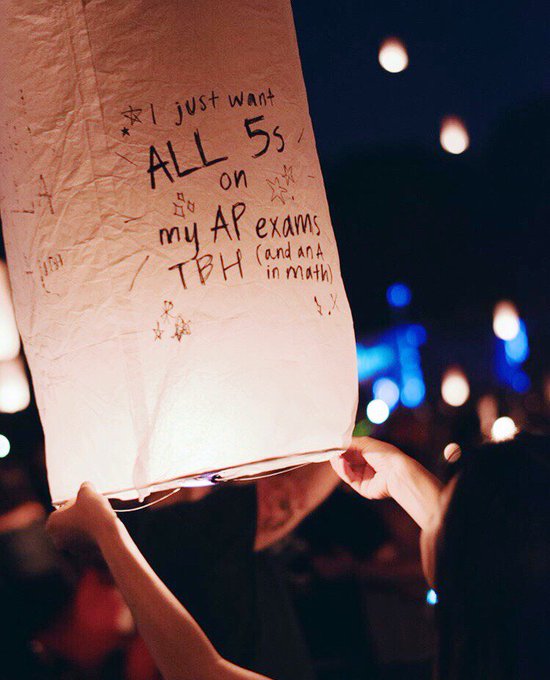 I just want
ALL 5s
on
my AP exams
TBH (and an A
in math)